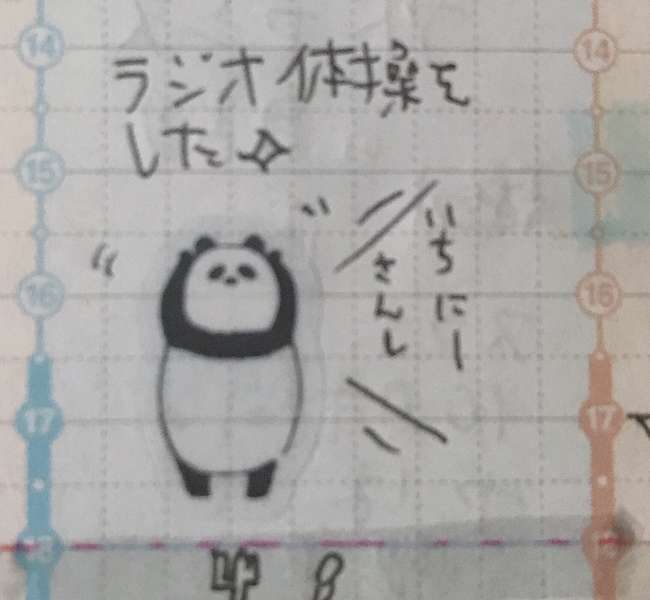 14
14
ラジオ体操を
した
15
15
いちにー
さんし
16
16
17
17
18
18
8